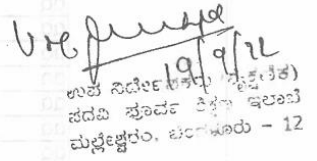 19/9/22
ಉಪ ನಿರ್ದೇಶಕರು (ಶೈಕ್ಷಣಿಕ)
ಪದವಿ ಪೂರ್ವ ಶಿಕ್ಷಣ ಇಲಾಖೆ
ಮಲ್ಲೇಶ್ವರಂ, ಬೆಂಗಳೂರು - 12